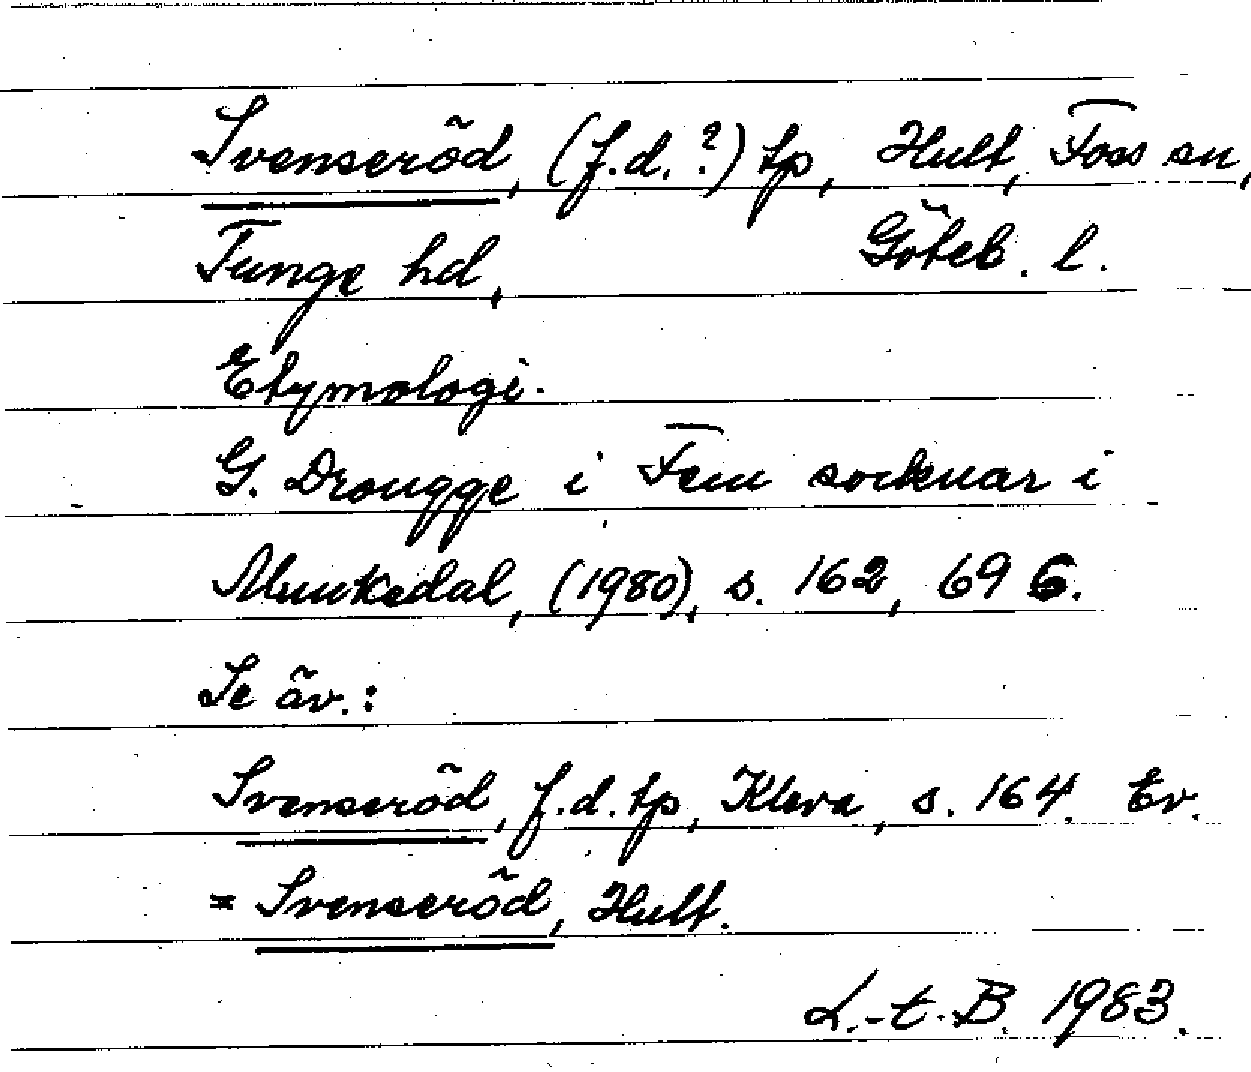 Svenseröd, (f.d.?) tp, Hult, Foss sn,
Tunge hd, Göteb. l.
Etymologi.
G. Drougge i Fem socknar i
Munkedal, (1980), s. 162, 69 6.
Se äv.:
Svenseröd, f.d. tp, Kleva, s. 164. Ev.
= Svenseröd, Hult.
L.-t. B. 1983.